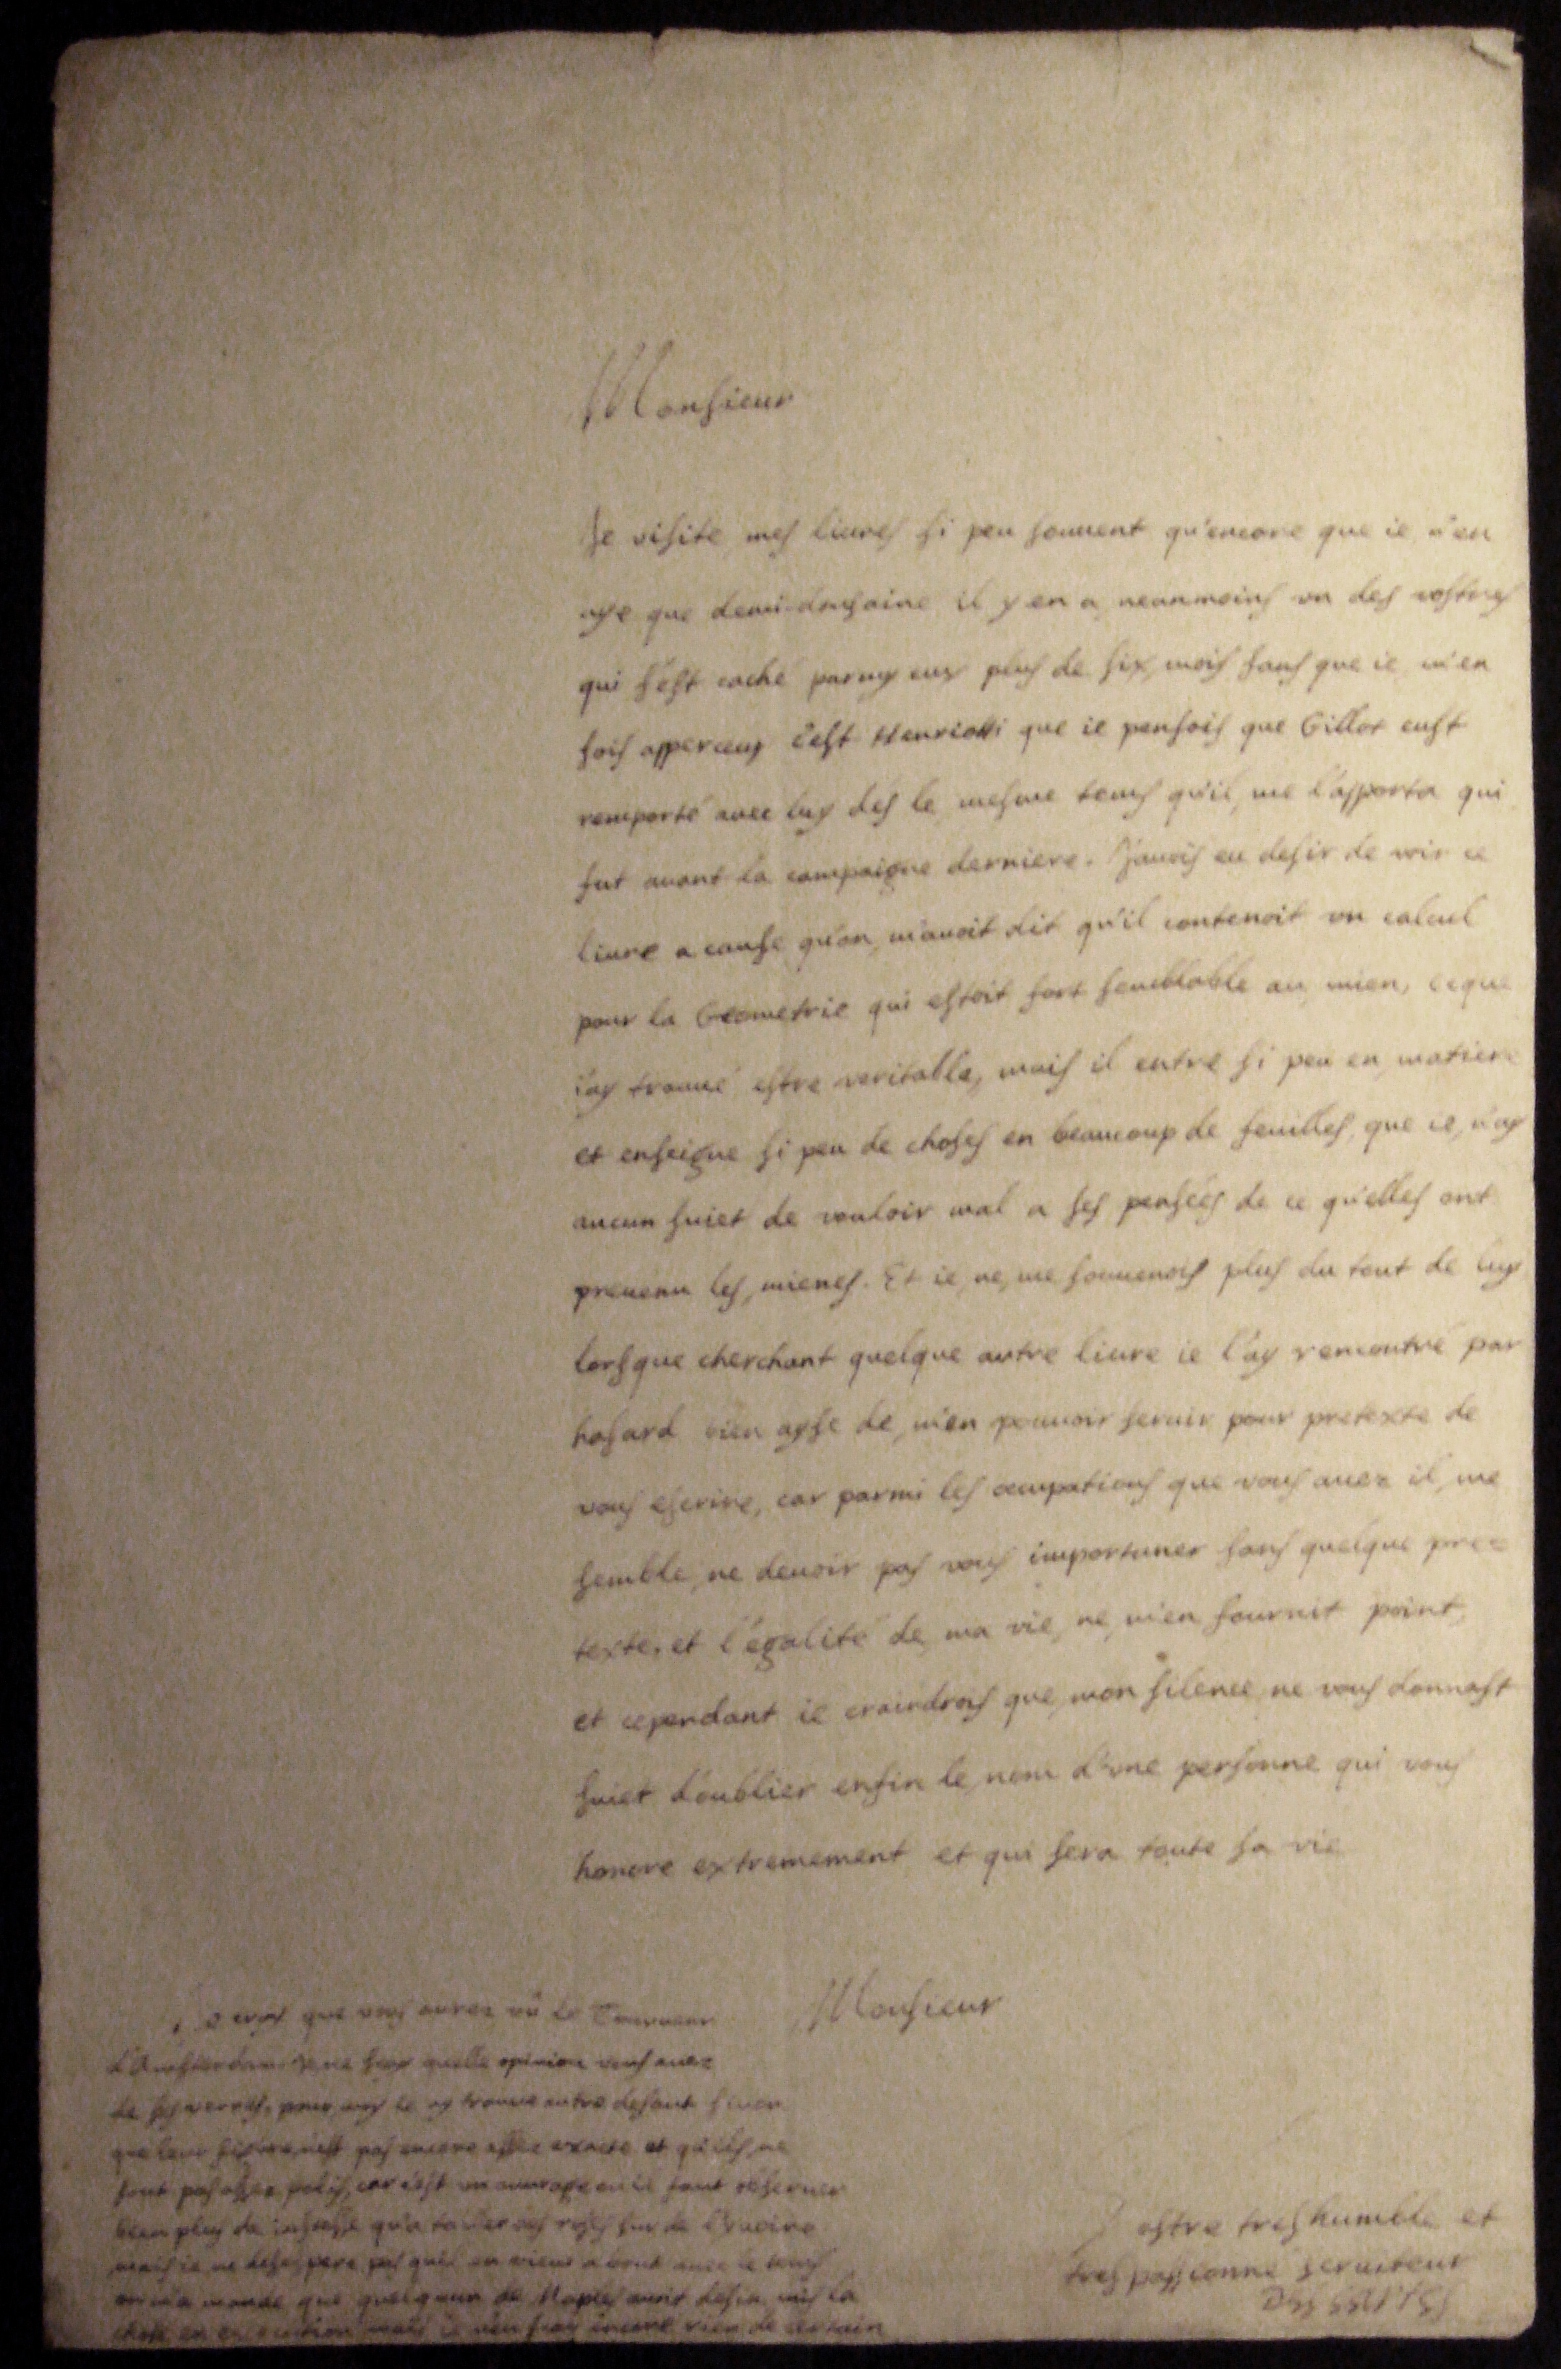 Monsieur
Je visite mes liures si peu souuent qu'encore que ie n'en
aye que demi-dousaine il y en a neanmoins vn des vostres
qui s'est caché parmy eux plus de six mois sans que ie m'en
sois apperceu, c'est Henrion que ie pensois que Gillot eust
remporté auec luy des le mesme tems qu'il me l'apporta qui
fut auant la campaigne derniere. J'auois eu desir de voir ce
liure a cause qu'on m'auoit dit qu'il contenoit vn calcul
pour la Geometrie qui estoit fort semblable au mien, ce que
i'ay trouué estre veritable, mais il entre si peu en matiere
et enseigne si peu de choses en beaucoup de feuilles, que ie n'ay
aucun suiet de vouloir mal a ses pensées de ce qu'elles ont
preuenu les mienes. Et ie ne me souuenois plus du tout de luy
lorsque cherchant quelque autre liure ie l'ay rencontré par
hasard bien ayse de m'en pouuoir seruir pour pretexte de
vous escrire, car parmi les occupations que vous auez il me
semble ne deuoir pas vous importuner sans quelque pre=
texte, et l'égalité de ma vie ne m'en fournit point
et cependant ie craindrois que mon silence ne vous donnast
suiet d'oublier enfin le nom d'vne personne qui vous
honore extremement et qui sera toute sa vie
Monsieur
Vostre tres humble et
tres passionné seruiteur
Je crois que vous aurez vû le Tourneur
d'Amsterdam. Je ne sçay quelle opinion vous auez
de ses verres, pour moy ie n'y trouue autre defaut sinon
que leur figure n'est pas encore assez exacte et qu'ils ne
sont pas assez polis, car c'est vn ouurage ou il faut obseruer
bien plus de iustesse qu'a tailler des roses sur de l'yuoire
mais ie ne desespere pas qu'il en viene a bout auec le tems
on m'a mandé que quelqu'un de Naples auoit desia mis la
chose en execution mais ie n'en sçay encore rien de certain